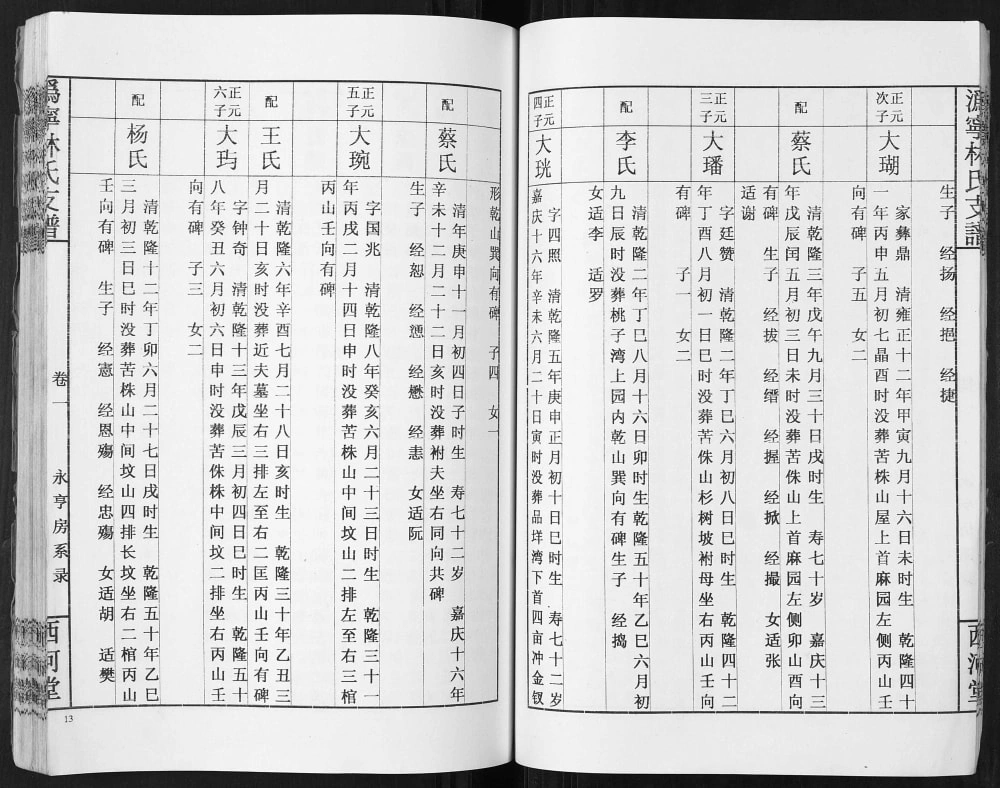 沩宁林氏支谱
西河堂
生子 经扬 经挹 经捷
正元次子
大瑚
家彝鼎 清雍正十二年甲寅九月十六日未时生 乾隆四十
一年丙申五月初七晶酉时没葬苦株山屋上首麻园左侧丙山壬
向有碑 子五 女二
配
蔡氏
清乾隆三年戊午九月三十日戌时生 寿七十岁 嘉庆十三
年戊辰闰五月初三日未时没葬苦侏山上首麻园左侧卯山酉向
有碑 生子 经拔 经缙 经握 经掀 经撮 女适张
适谢
正元三子
大璠
字廷赞 清乾隆二年丁巳六月初八日巳时生 乾隆四十二
年丁酉八月初一日巳时没葬苦侏山杉树坡祔母坐右丙山壬向
有碑 子一 女二
配
李氏
清乾隆二年丁巳八月十六日卯时生乾隆五十年乙巳六月初
九日辰时没葬桃子湾上园内乾山巽向有碑生子 经捣
女适李 适罗
正元四子
大珖
字四照 清乾隆五年庚申正月初十日巳时生 寿七十二岁
嘉庆十六年辛未六月二十日寅时没葬品垟湾下首四亩冲金钗
形乾山巽向有碑 子四 女一
配
蔡氏
清年庚申十一月初四日子时生 寿七十二岁 嘉庆十六年
辛未十二月二十二日亥时没葬祔夫坐右同向共碑
生子 经恕 经 经懋 经恚 女适阮
正元五子
大琬
字国兆 清乾隆八年癸亥六月二十三日时生 乾隆三十一
年丙戌二月十四日申时没葬苦株山中间坟山二排左至右三棺
丙山壬向有碑
配
王氏
清乾隆六年辛酉七月二十八日亥时生 乾隆三十年乙丑三
月二十日亥时没葬近夫墓坐右三排左至右二匡丙山壬向有碑
正元六子
大玙
字钟奇 清乾隆十三年戊辰三月初四日巳时生 乾隆五十
八年癸丑六月初六日申时没葬苦侏株中间坟二排坐右丙山壬
向有碑 子三 女二
配
杨氏
清乾隆十二年丁卯六月二十七日戌时生 乾隆五十年乙巳
三月初三日巳时没葬苦株山中间坟山四排长坟坐右二棺丙山
壬向有碑 生子 经憲 经恩殇 经忠殇 女适胡 适樊
沩宁林氏支谱
卷一
永亨房系录
西河堂
13